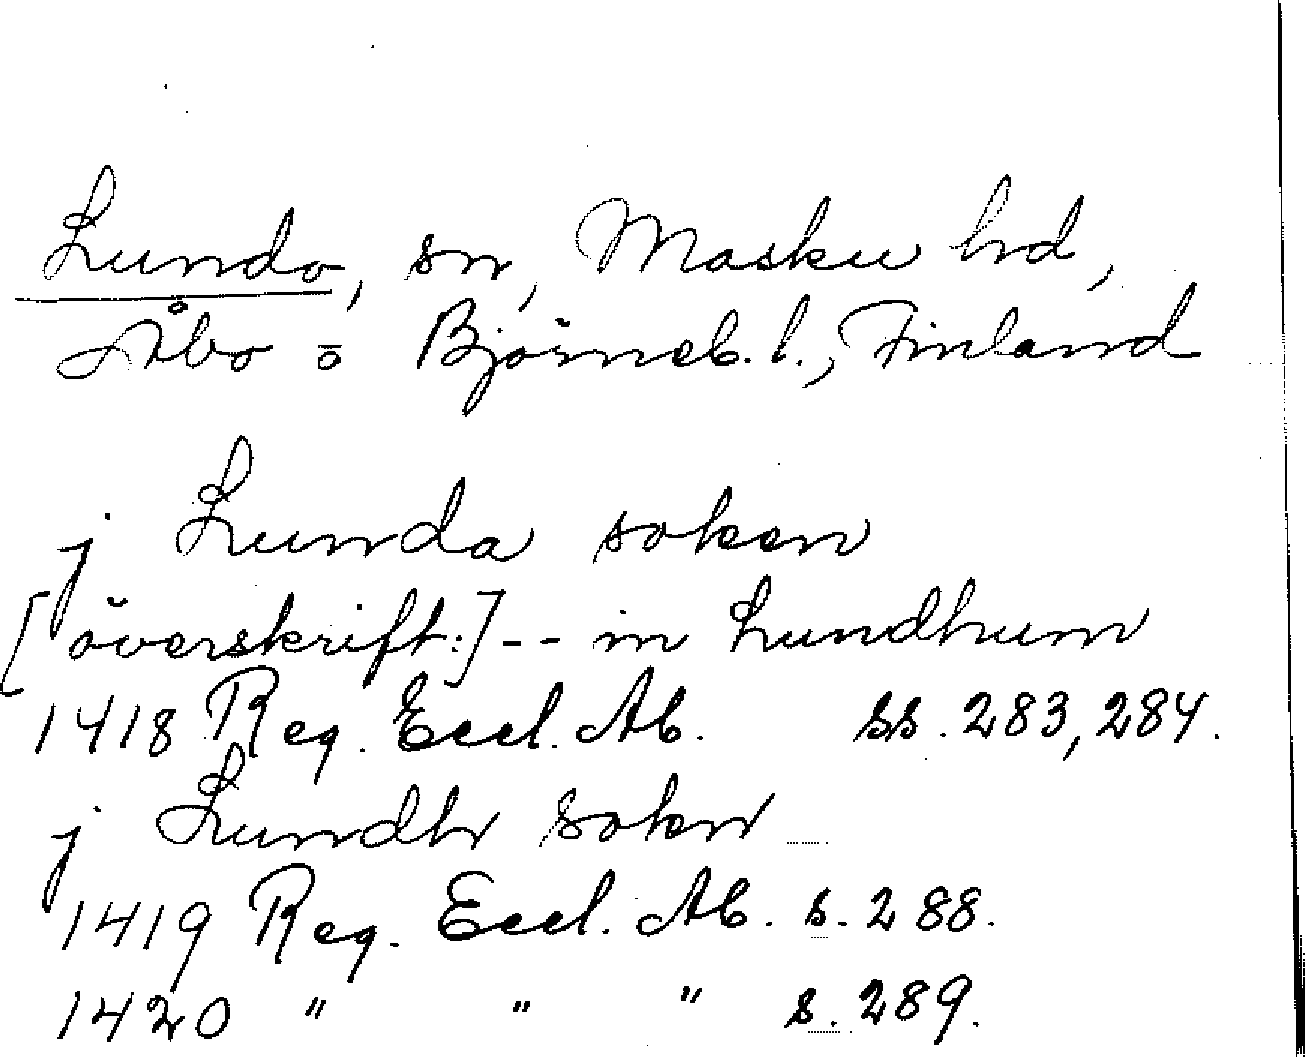 Lundo, sn, Masku hd,
Åbo o Björneb. l., Finland
j Lunda soken
[överskrift:] -- in Lundhum
1418 Reg. Eccl. Ab. ss. 283, 284.
j Lundh sokn
1419 Reg. Eccl. Ab. s. 288.
1420 " " " s. 289.